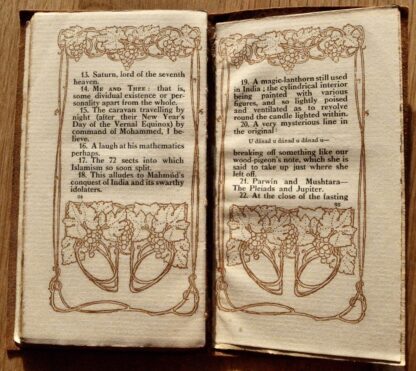 13. Saturn, lord of the seventh
heaven.
14. ME AND THEE: that is,
some dividual existence or per-
sonality apart from the whole.
15. The caravan travelling by
night (after their New Year's
Day of the Vernal Equinox) by
command of Mohammed, I be-
lieve.
16. A laugh at his mathematics
perhaps.
17. The 72 sects into which
Islamism so soon split.
18. This alludes to Mahmúd's
conquest of India and its swarthy
idolaters.
19. A magic-lanthorn still used
in India; the cylindrical interior
being painted with various
figures, and so lightly poised
and ventilated as to revolve
round the candle lighted within.
20. A very mysterious line in
the original:
U dánad u dánad u dánad u—
breaking off something like our
wood-pigeon's note, which she is
said to take up just where she
left off.
21. Parwin and Mushtara—
The Pleiads and Jupiter.
22. At the close of the fasting